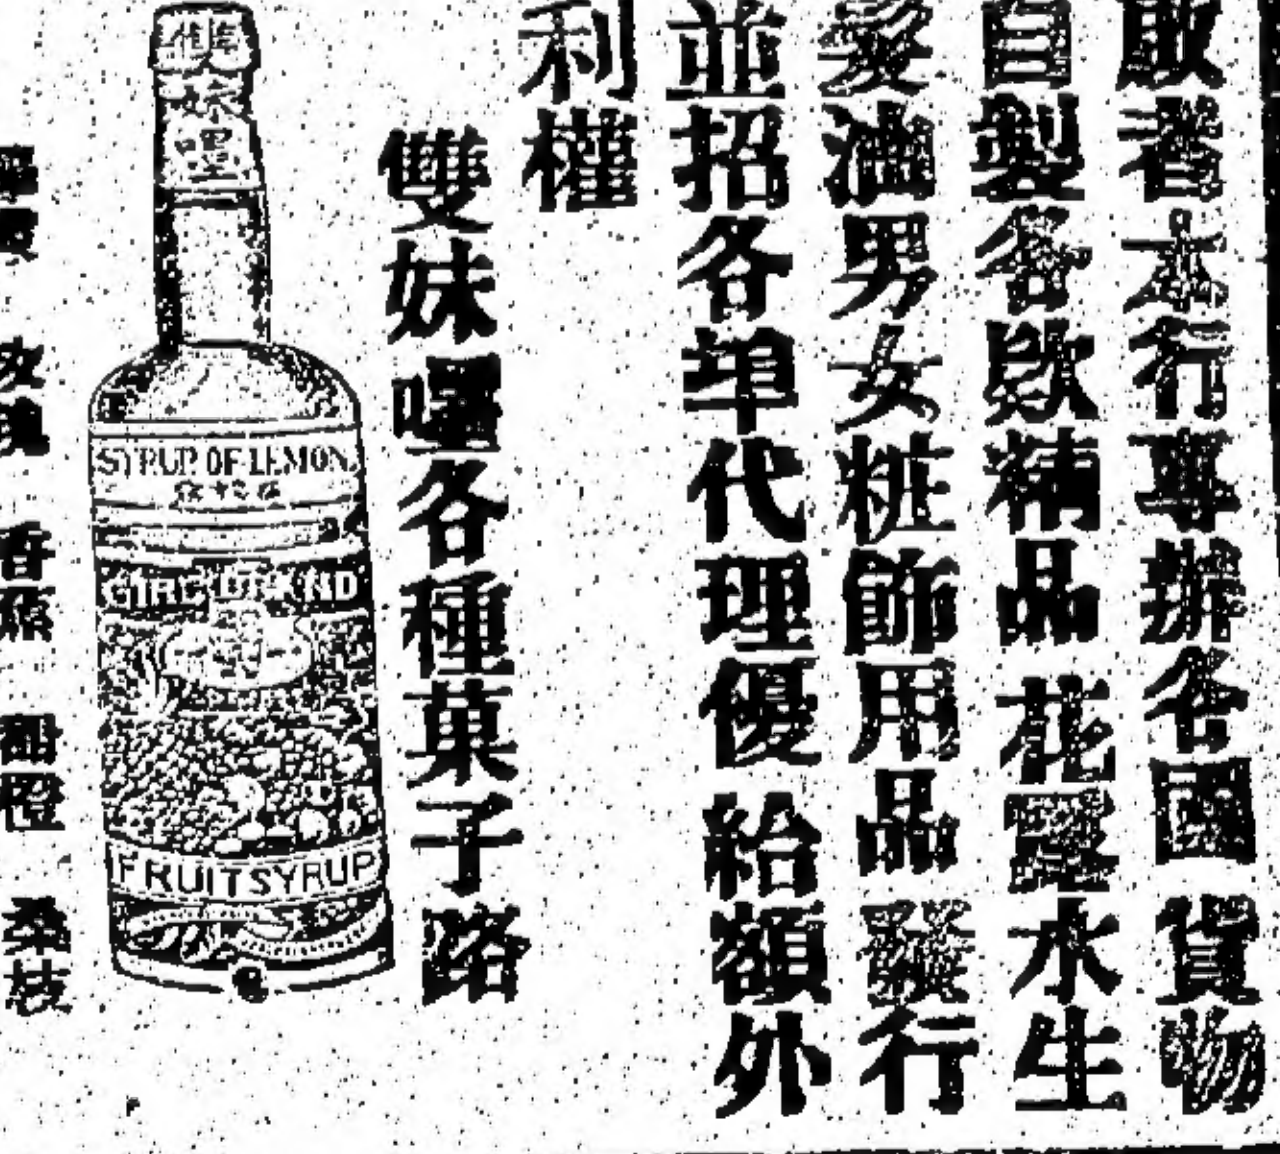 敬者本行專辦各國貨物
自製各欵精品花露水生
髮油男女粧飾用品發行
並招各埠代理優給額外
利權
雙妹嚜各種菓子路
雙妹嚜
SYRUP OF LEMON
GIRL BRAND
FRUIT SYRUP
玫瑰
香蕉
甜橙
桑枝